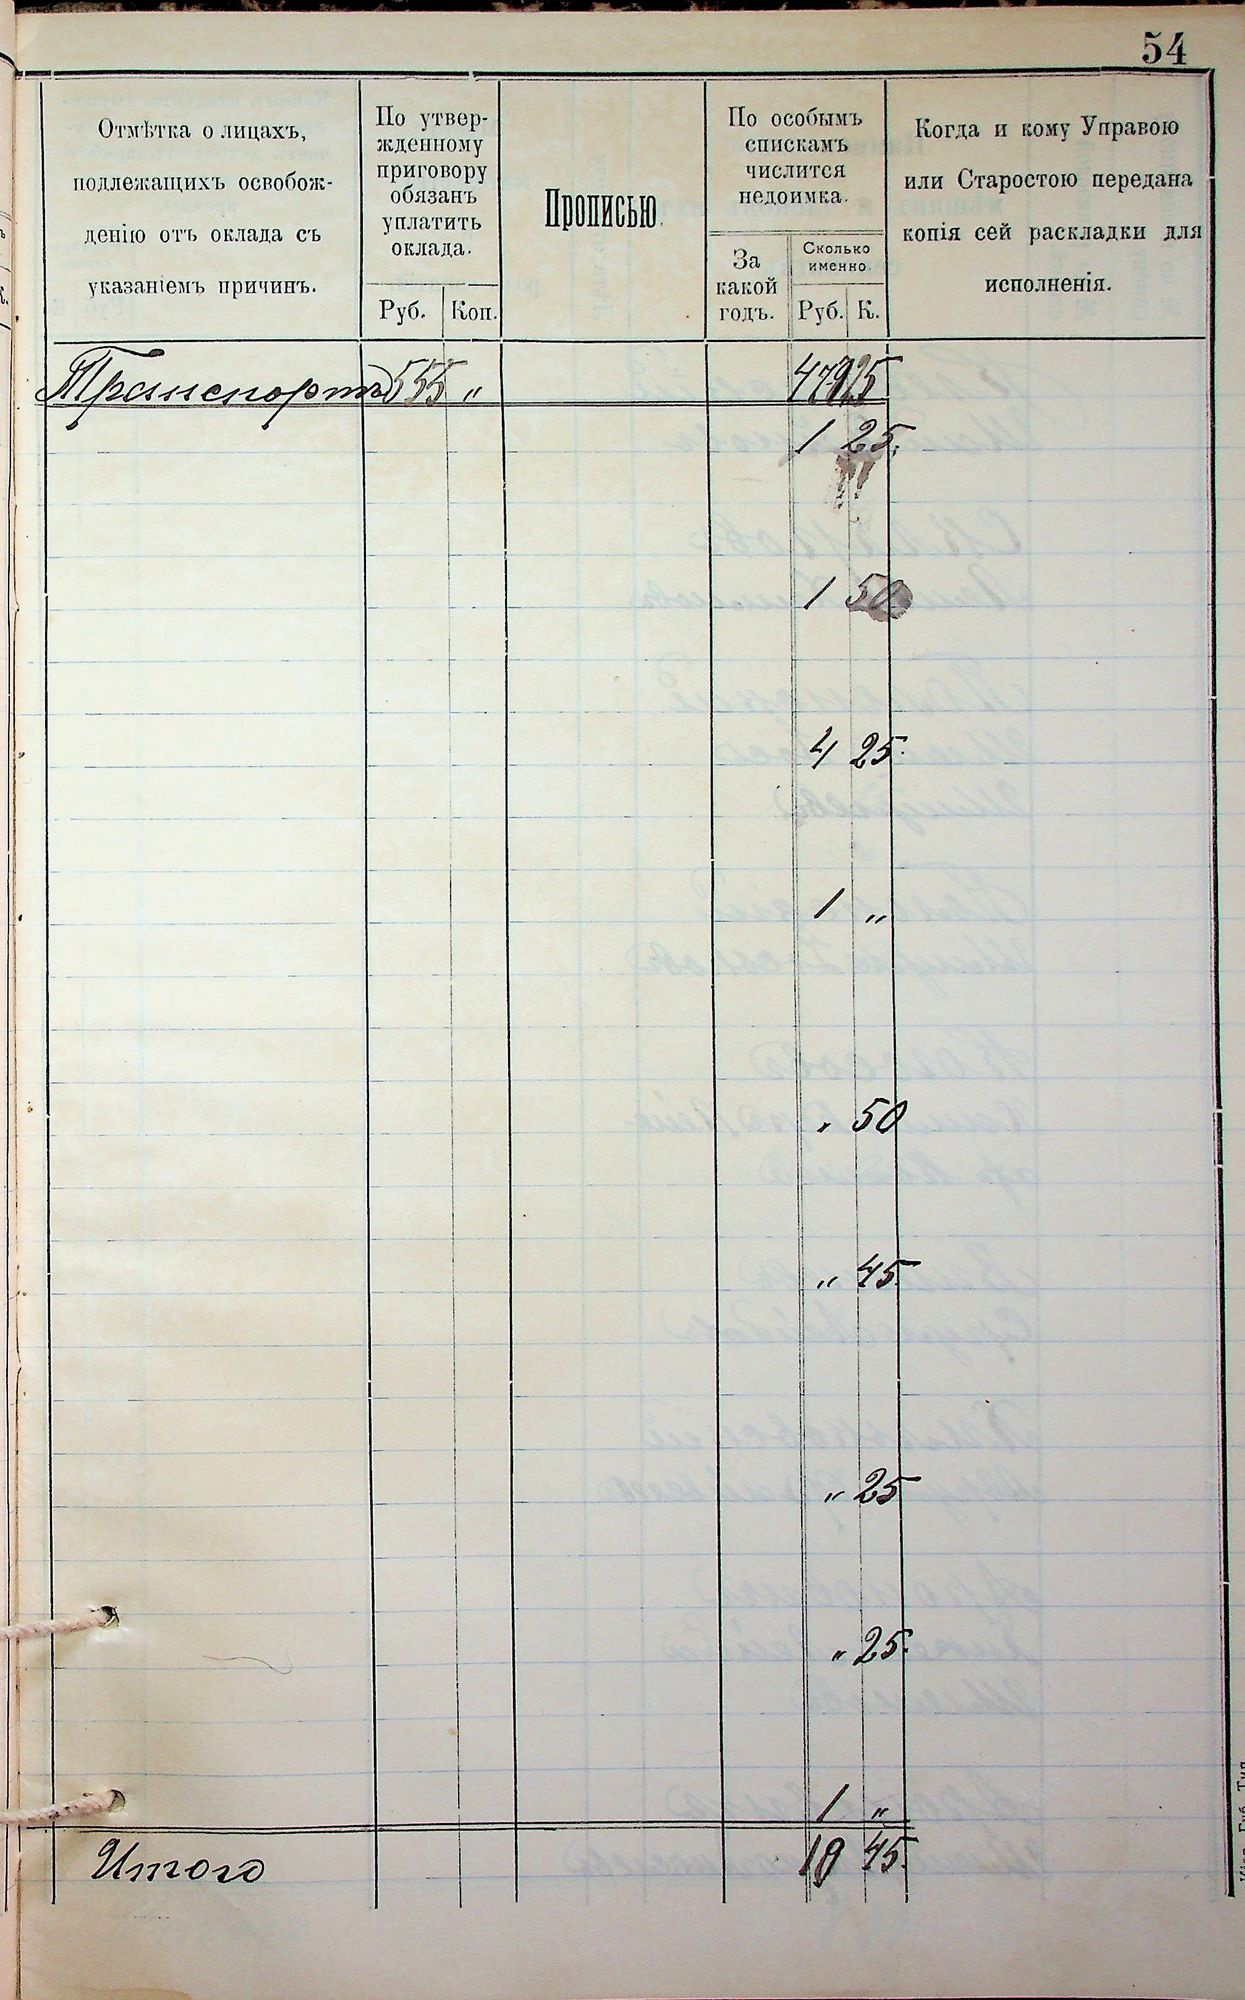 54
Отмѣтка о лицахъ,
подлежащихъ освобож-
денію отъ оклада съ
указаніемъ причинъ.
По утвер-
жденному
приговору
обязанъ
уплатить
оклада.
Руб. Коп.
Прописью.
По особымъ
спискамъ
числится
недоимка.
За
какой
годъ.
Сколько
именно
Руб. К.
Когда и кому Управою
или Старостою передана
копія сей раскладки для
исполненія.
Транспортъ 555 "
1 25.
1 50
4 25.
1 "
" 50
" 45.
" 25
" 25.
1 "
Итого 10 45.